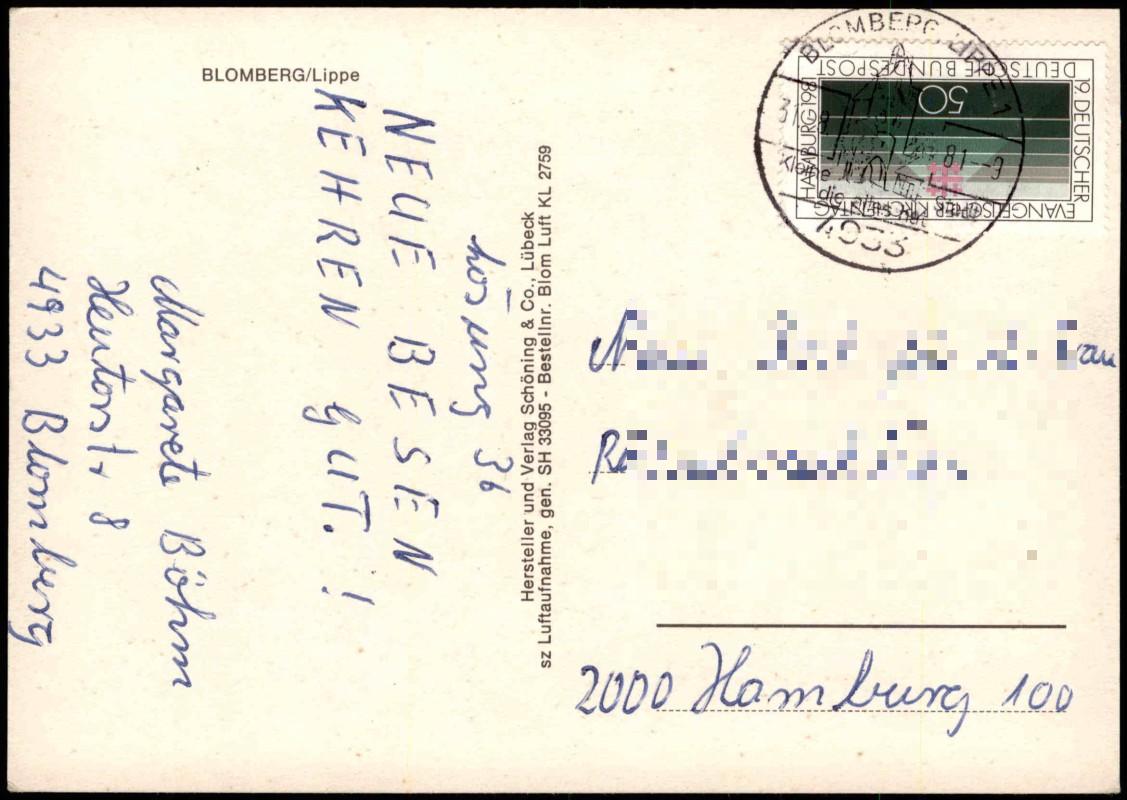 BLOMBERG/Lippe
Lösung 36
NEUE BESEN
KEHREN GUT.!
Margarete Böhm
Heutorstr 8
4933 Blomberg
Hersteller und Verlag Schöning & Co., Lübeck
sz Luftaufnahme, gen. SH 33095 - Bestellnr. Blom Luft KL 2759
BLOMBERG, LIPPE 1
81-9
4933
DEUTSCHE BUNDESPOST
50
19. DEUTSCHER
EVANGELISCHER KIRCHENTAG
HAMBURG 1981
2000 Hamburg 100